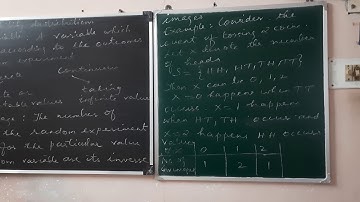 distribution
variable : A variable which
according to the outcomes
experiment
continuous
taking
table values infinite values
: The number of
the random experiment
for the particular value
om variable are its inverse
images
Example : Consider the
event of tossing a coin
denote the number
of heads
S = {HH, HT, TH, TT}
then x can be 0, 1, 2
x = 0 happens when TT
occurs x = 1 happens
when HT, TH occurs and
x = 2 happens HH occurs
values 0 1 2
1 2 1